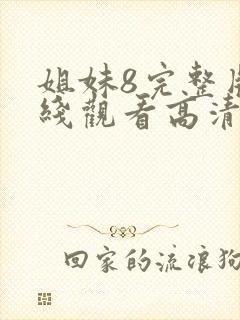 姐妹8完整
綫觀看高清
回家的流浪狗